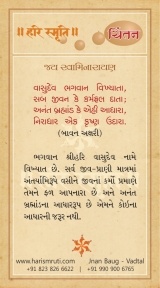 ॥ હરિ સ્મૃતિ ॥
ચિંતન
જય સ્વામિનારાયણ
વાસુદેવ ભગવાન વિખ્યાતા,
સબ જીવન કે કર્મફલ દાતા;
અનંત બ્રહ્માંડ કે એહી આધારા,
નિરાધાર એક કૃષ્ણ ઉદારા.
(ભાવન અક્ષરી)
ભગવાન શ્રીહરિ વાસુદેવ નામે
વિખ્યાત છે. સર્વ જીવ-પ્રાણી માત્રમાં
અંતર્યામિરૂપે વસીને જીવનાં કર્મો પ્રમાણે
તેમને ફળ આપનારા છે અને અનંત
બ્રહ્માંડના આધારરૂપ છે એમને કોઈના
આધારની જરૂર નથી.
www.harismruti.com
Jnan Baug - Vadtal
+91 823 826 6622
+91 990 900 6765